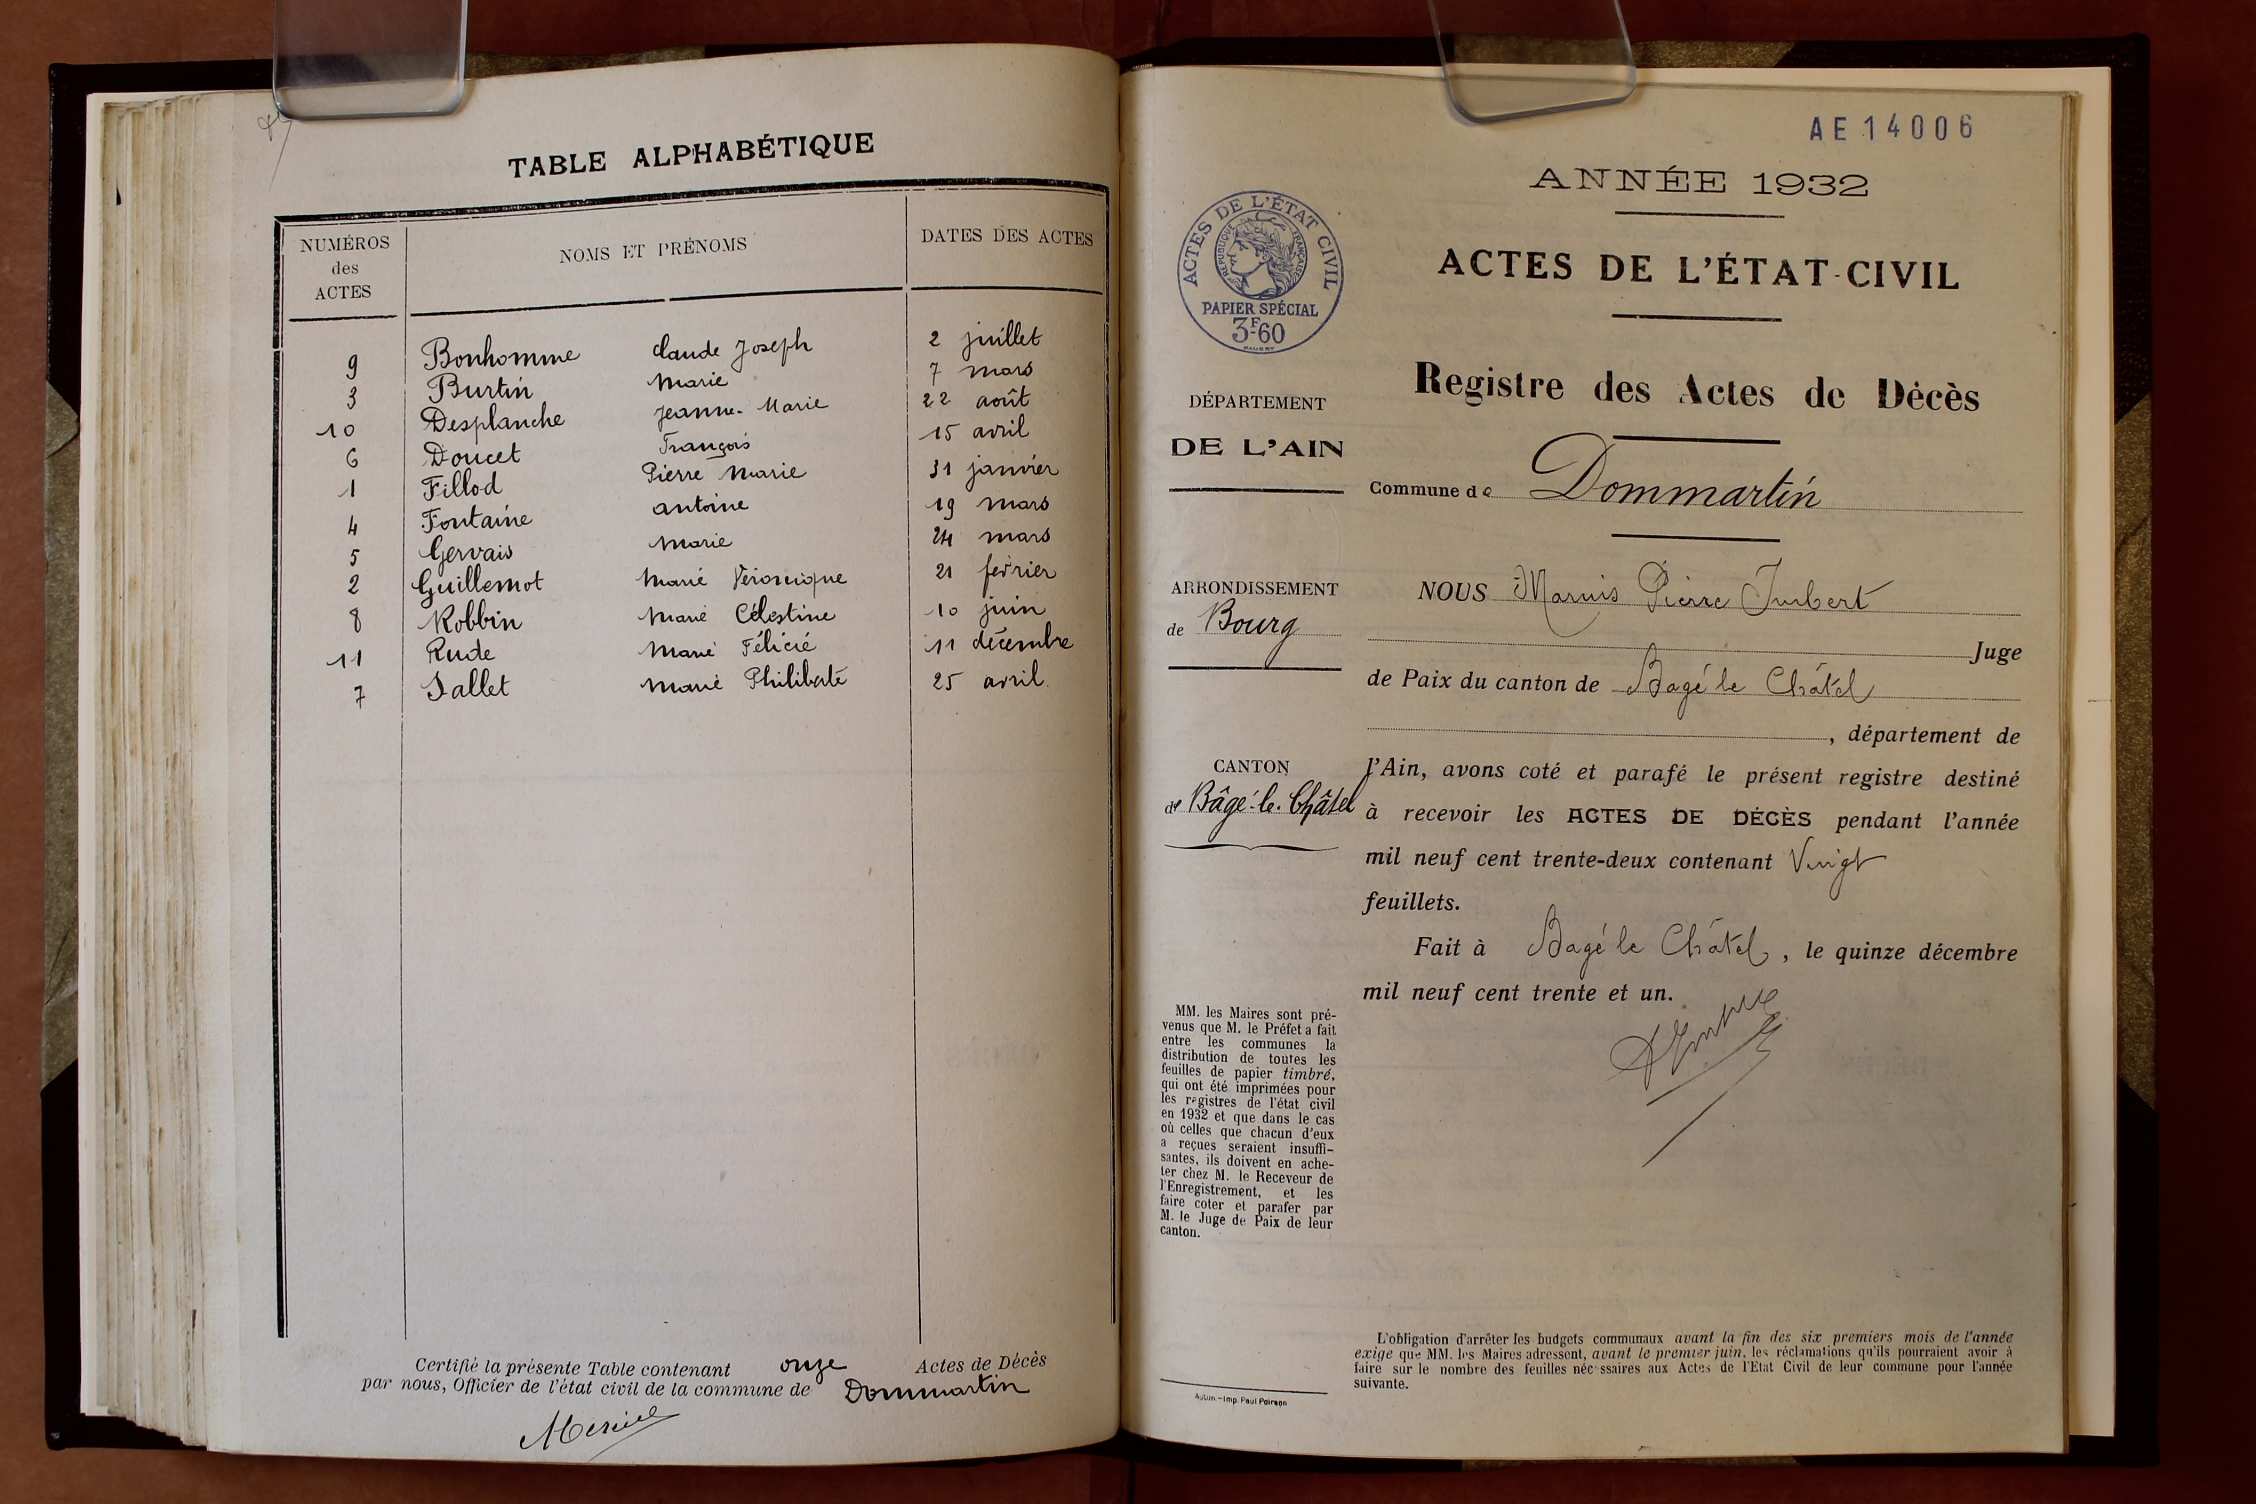 TABLE ALPHABÉTIQUE
NUMÉROS des ACTES NOMS ET PRÉNOMS DATES DES ACTES
9 Bonhomme Claude Joseph 2 juillet
3 Burtin Marie 7 mars
10 Desplanche Jeanne-Marie 22 août
6 Doucet François 15 avril
1 Fillod Pierre Marie 31 janvier
4 Fontaine Antoine 19 mars
5 Gervais Marie 24 mars
2 Guillemot Marie Véronique 21 février
8 Robbin Marie Célestine 10 juin
11 Rude Marie Félicie 11 décembre
7 Sallet Marie Philiberte 25 avril
Certifié la présente Table contenant onze Actes de Décès
par nous, Officier de l'état civil de la commune de Dommartin
AE14006
ANNÉE 1932
ACTES DE L'ÉTAT CIVIL
RÉPUBLIQUE FRANÇAISE
PAPIER SPÉCIAL
3F60
ACTES DE L'ÉTAT-CIVIL
Registre des Actes de Décès
DÉPARTEMENT
DE L'AIN
Commune de Dommartin
ARRONDISSEMENT
de Bourg
CANTON
de Bâgé-le-Châtel
NOUS Marius Pierre Imbert
Juge
de Paix du canton de Bagé le Châtel
, département de
l'Ain, avons coté et parafé le présent registre destiné
à recevoir les ACTES DE DÉCÈS pendant l'année
mil neuf cent trente-deux contenant Vingt
feuillets.
Fait à Bagé le Châtel, le quinze décembre
mil neuf cent trente et un.
MM. les Maires sont pré-
venus que M. le Préfet a fait
entre les communes la
distribution de toutes les
feuilles de papier timbré,
qui ont été imprimées pour
les registres de l'état civil
en 1932 et que dans le cas
où celles que chacun d'eux
a reçues seraient insuffi-
santes, ils doivent en ache-
ter chez M. le Receveur de
l'Enregistrement, et les
faire coter et parafer par
M. le Juge de Paix de leur
canton.
L'obligation d'arrêter les budgets communaux avant la fin des six premiers mois de l'année
exige que MM. les Maires adressent, avant le premier juin, les réclamations qu'ils pourraient avoir à
faire sur le nombre des feuilles nécessaires aux Actes de l'Etat Civil de leur commune pour l'année
suivante.
Imp. Paul Poirson